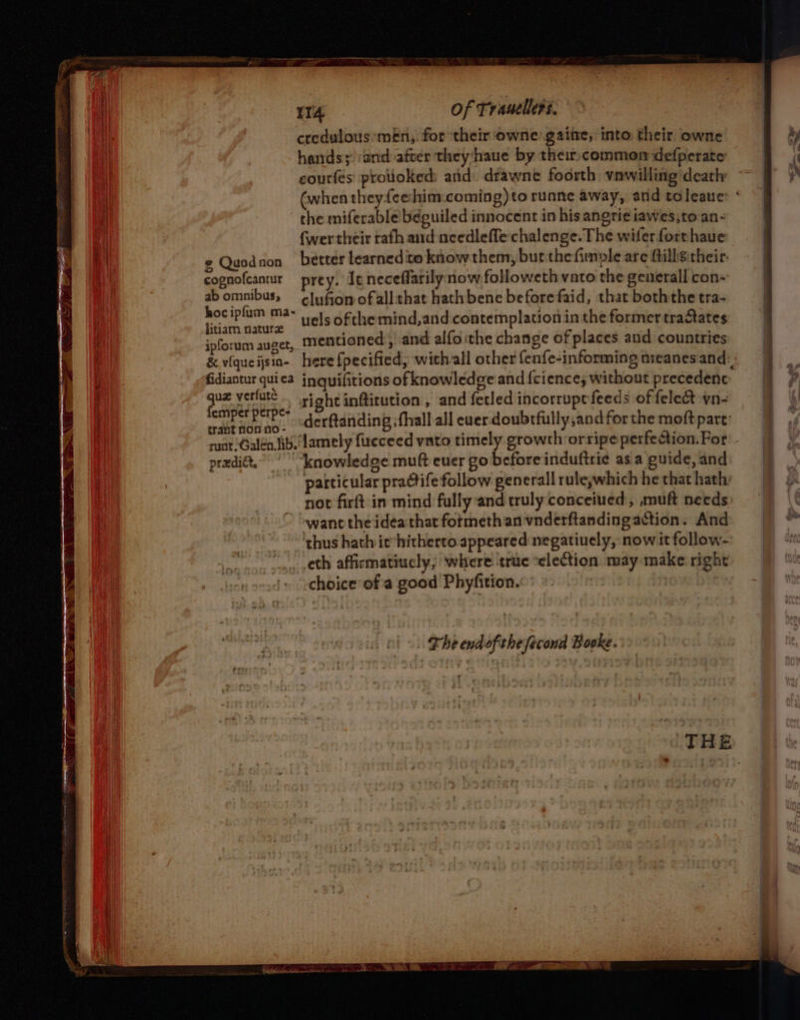 114 Of Trauellers.
credulous men, for their owne gaine, into their owne
hands; and after they haue by their common desperate
courses prouoked and drawne foorth vnwilling death
(when they see him coming) to runne away, and to leaue
the miserable beguiled innocent in his angrie iawes, to an-
swer their rash and needlesse chalenge. The wiser sort haue
better learned to know them, but the simple are still their
prey. It necessarily now followeth vnto the generall con-
clusion of all that hath bene before said, that both the tra-
uels of the mind, and contemplation in the former tractates
mentioned, and also the change of places and countries
here specified, with all other sense-informing meanes and
inquisitions of knowledge and science, without precedent
right institution, and setled incorrupt seeds of select vn-
derstanding, shall all euer doubtfully, and for the most part
lamely succeed vnto timely growth or ripe perfection. For
knowledge must euer go before industrie as a guide, and
particular practise follow generall rule, which he that hath
not first in mind fully and truly conceiued, must needs
want the idea that formeth an vnderstanding action. And
thus hath it hitherto appeared negatiuely, now it follow-
eth affirmatiuely, where true election may make right
choice of a good Physition.
g Quod non
cognoscantur
ab omnibus,
hoc ipsum ma-
litiam naturæ
ipsorum auget,
& vsque ijs in-
sidiantur qui ea
quæ versutè
semper perpe-
trant non no-
runt. Galen. lib.
prædict.
The end of the second Booke.
THE